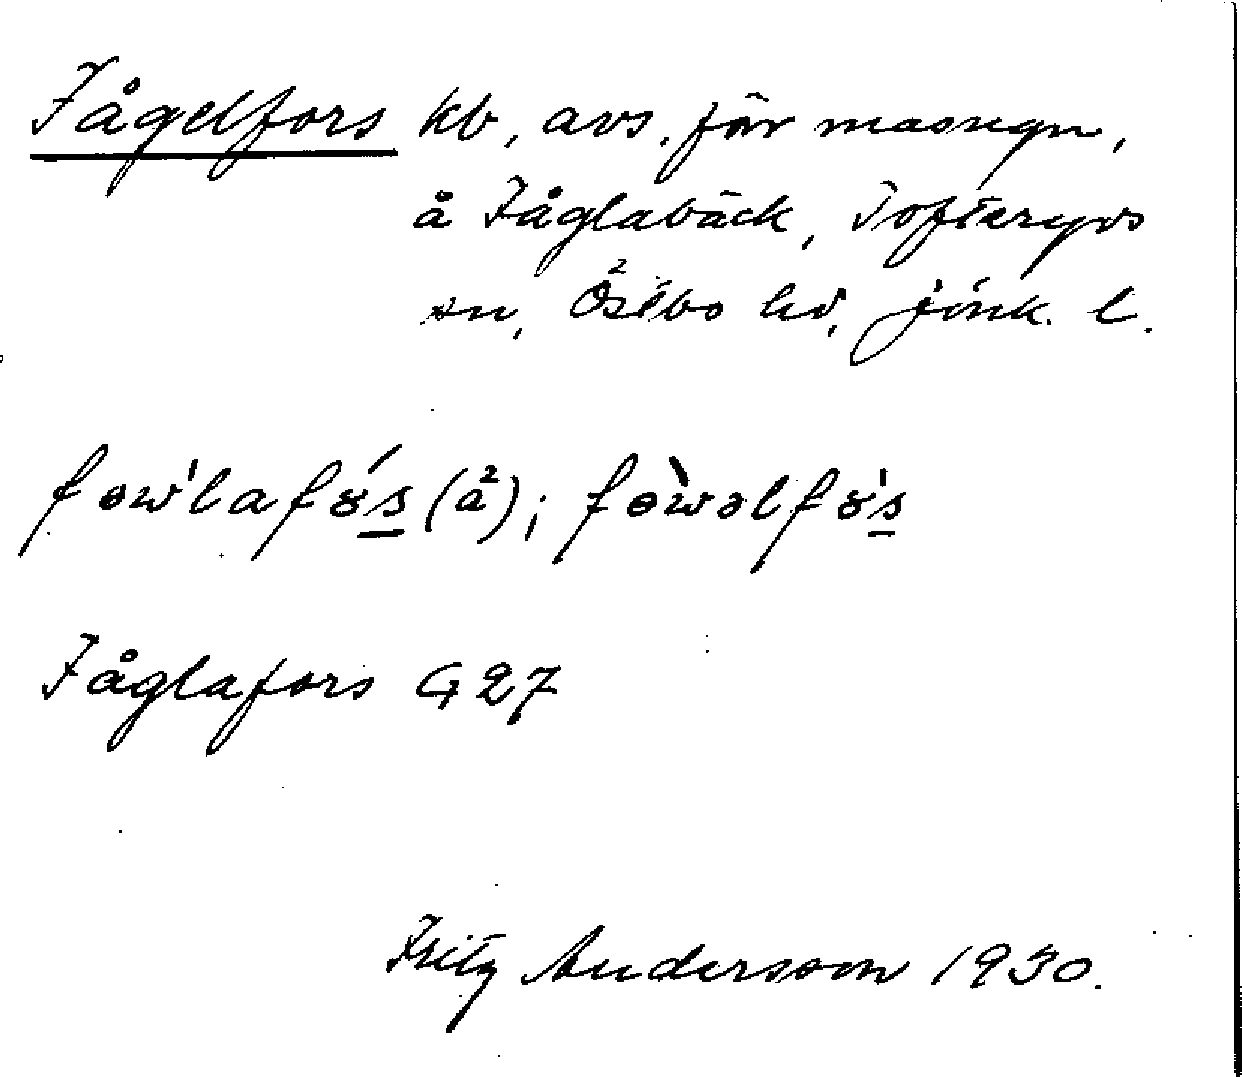 Fågelfors kb, avs. för masugn,
å Fåglabäck, Tofteryds
sn, Östbo hd, Jönk. l.
fɵw'lafɤ́s (å²); fɵ̀wəlfɤ's
Fåglafors G 27
Fritz Andersson 1930.